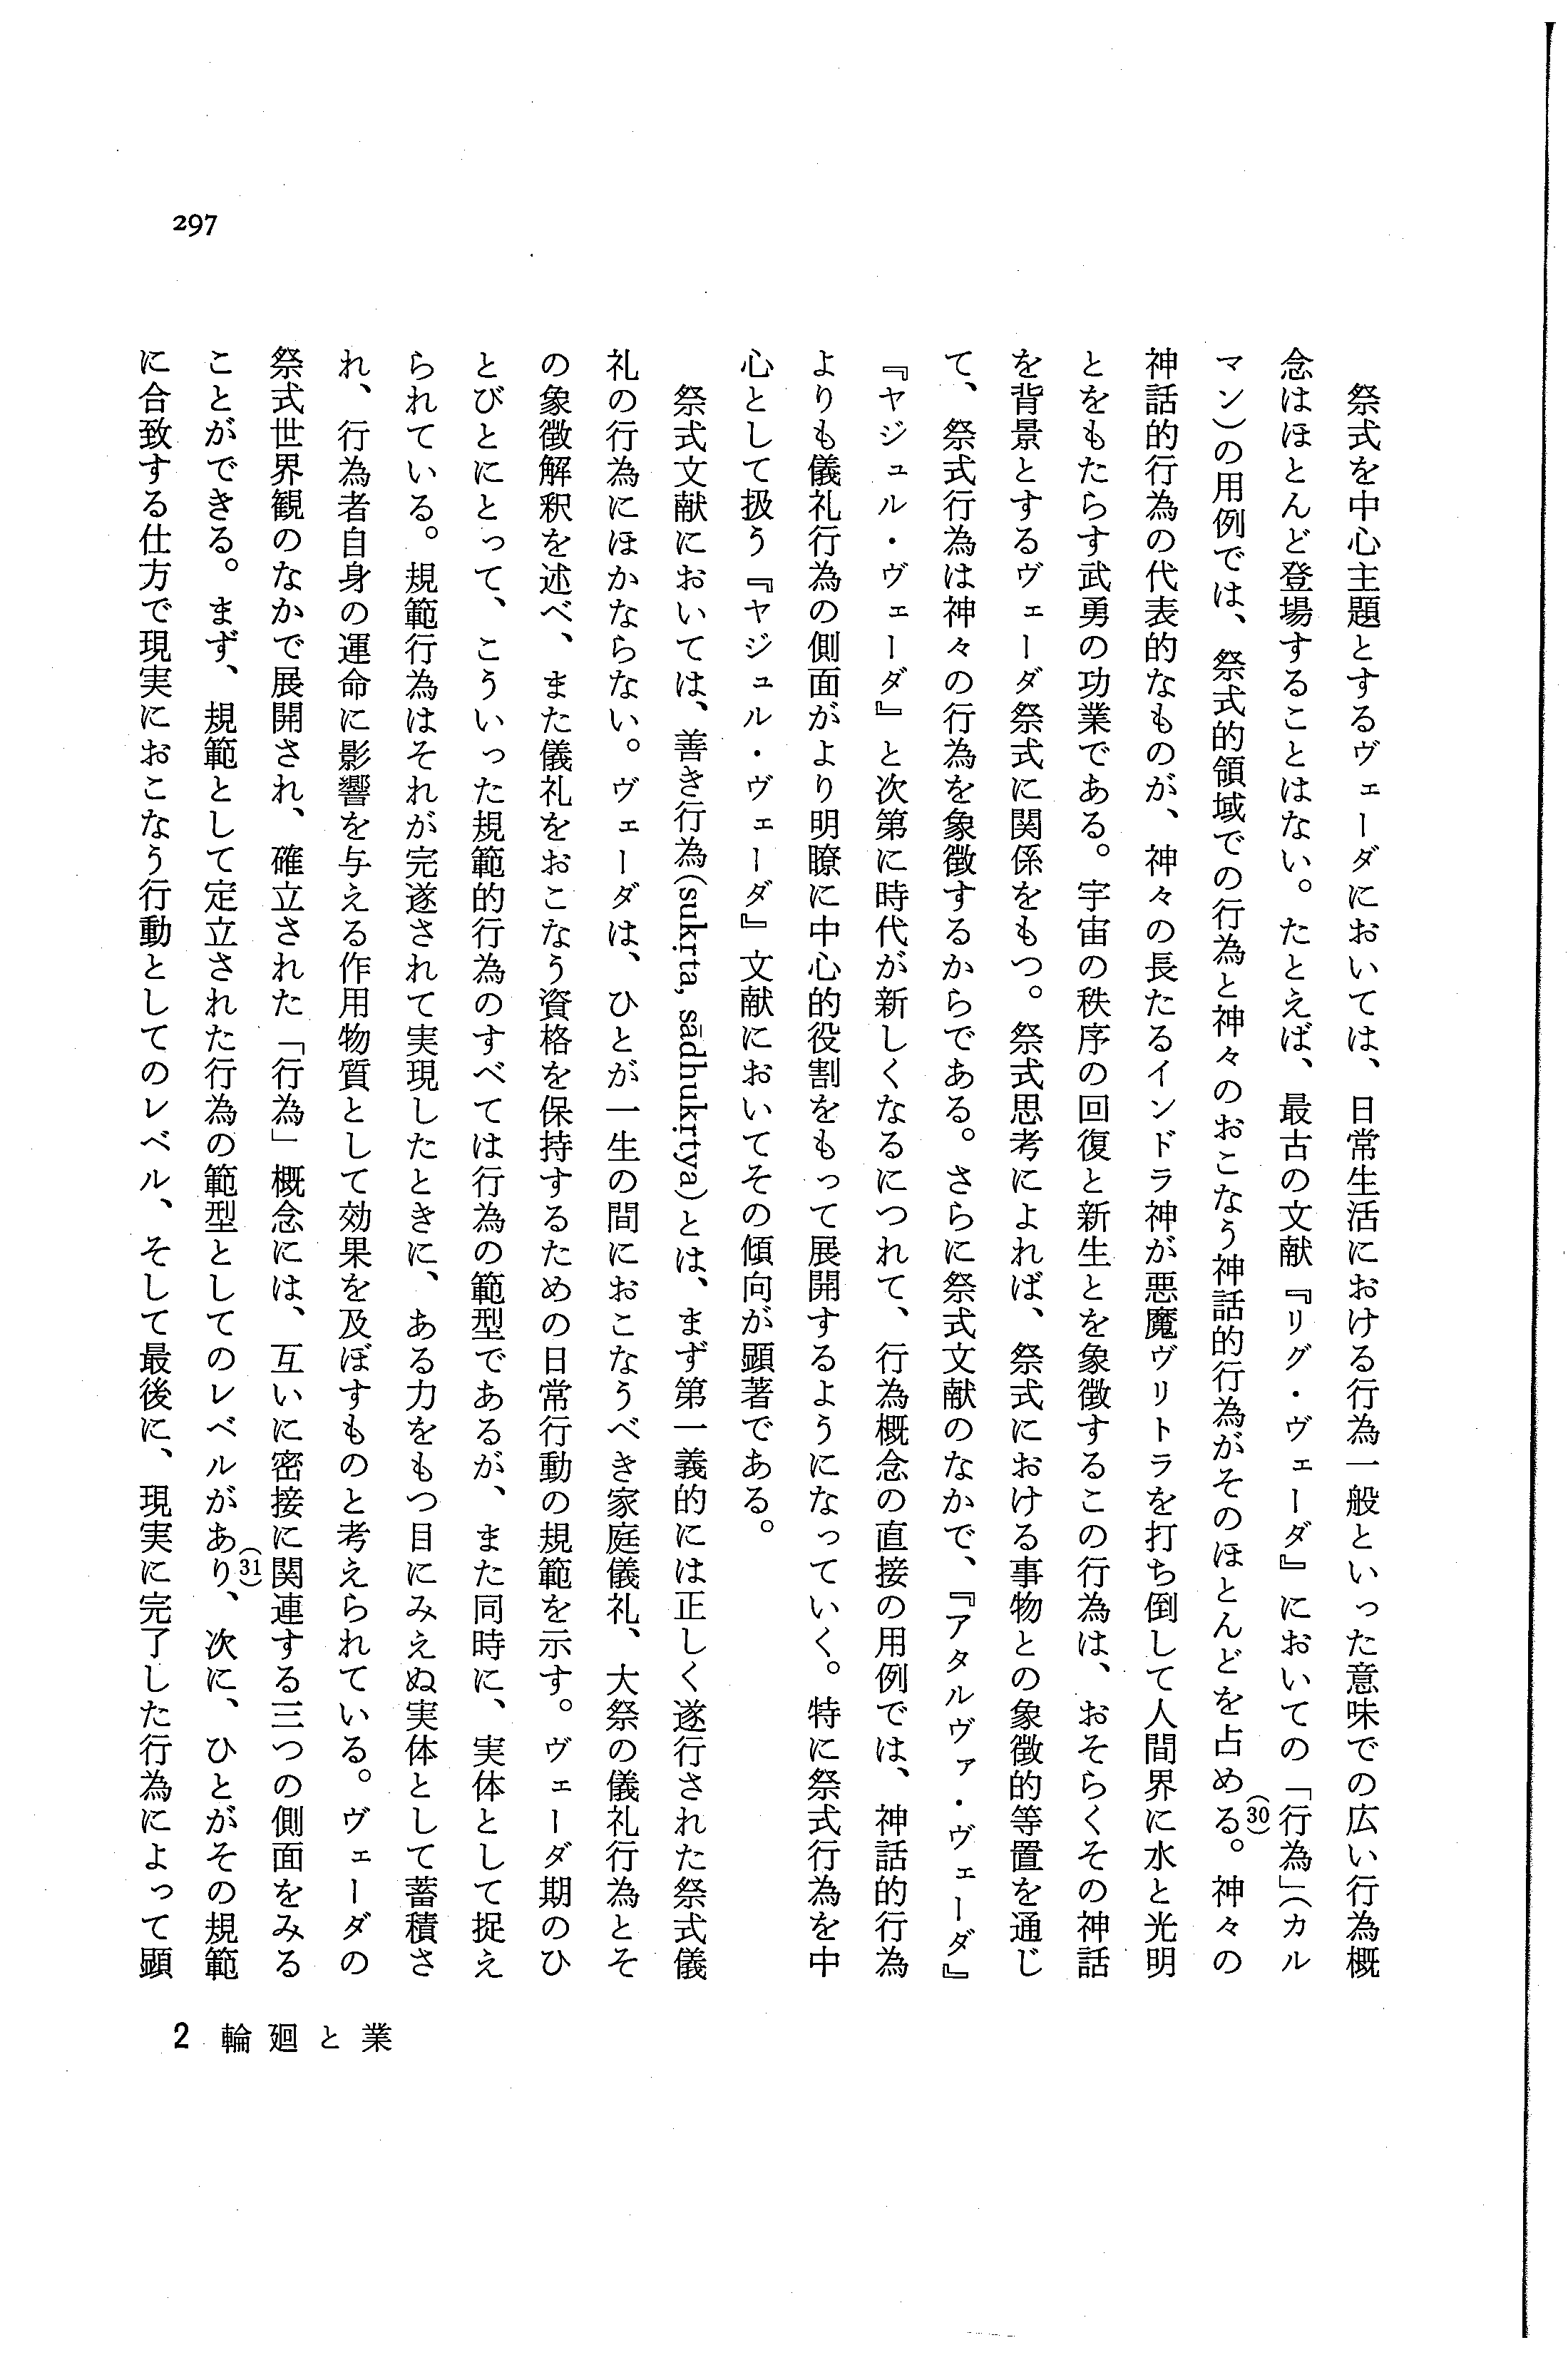 297
　祭式を中心主題とするヴェーダにおいては、日常生活における行為一般といった意味での広い行為概
念はほとんど登場することはない。たとえば、最古の文献『リグ・ヴェーダ』においての「行為」(カル
マン)の用例では、祭式的領域での行為と神々のおこなう神話的行為がそのほとんどを占める。(30)神々の
神話的行為の代表的なものが、神々の長たるインドラ神が悪魔ヴリトラを打ち倒して人間界に水と光明
とをもたらす武勇の功業である。宇宙の秩序の回復と新生とを象徴するこの行為は、おそらくその神話
を背景とするヴェーダ祭式に関係をもつ。祭式思考によれば、祭式における事物との象徴的等置を通じ
て、祭式行為は神々の行為を象徴するからである。さらに祭式文献のなかで、『アタルヴァ・ヴェーダ』
『ヤジュル・ヴェーダ』と次第に時代が新しくなるにつれて、行為概念の直接の用例では、神話的行為
よりも儀礼行為の側面がより明瞭に中心的役割をもって展開するようになっていく。特に祭式行為を中
心として扱う『ヤジュル・ヴェーダ』文献においてその傾向が顕著である。
　祭式文献においては、善き行為(sukṛta, sādhukṛtya)とは、まず第一義的には正しく遂行された祭式儀
礼の行為にほかならない。ヴェーダは、ひとが一生の間におこなうべき家庭儀礼、大祭の儀礼行為とそ
の象徴解釈を述べ、また儀礼をおこなう資格を保持するための日常行動の規範を示す。ヴェーダ期のひ
とびとにとって、こういった規範的行為のすべては行為の範型であるが、また同時に、実体として捉え
られている。規範行為はそれが完遂されて実現したときに、ある力をもつ目にみえぬ実体として蓄積さ
れ、行為者自身の運命に影響を与える作用物質として効果を及ぼすものと考えられている。ヴェーダの
祭式世界観のなかで展開され、確立された「行為」概念には、互いに密接に関連する三つの側面をみる
ことができる。まず、規範として定立された行為の範型としてのレベルがあり、(31)次に、ひとがその規範
に合致する仕方で現実におこなう行動としてのレベル、そして最後に、現実に完了した行為によって顕
2 輪廻と業